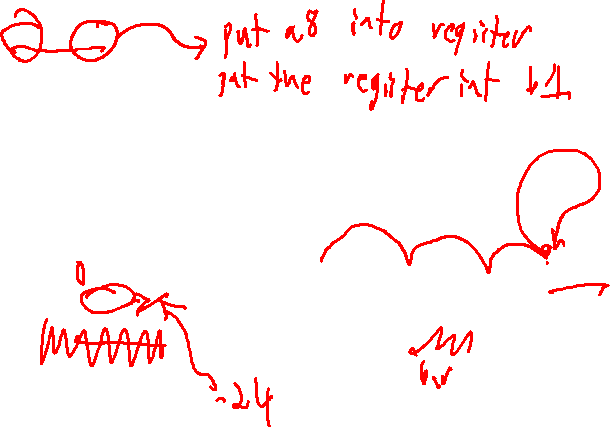 put a8 into register
put the register int b1
0
-24